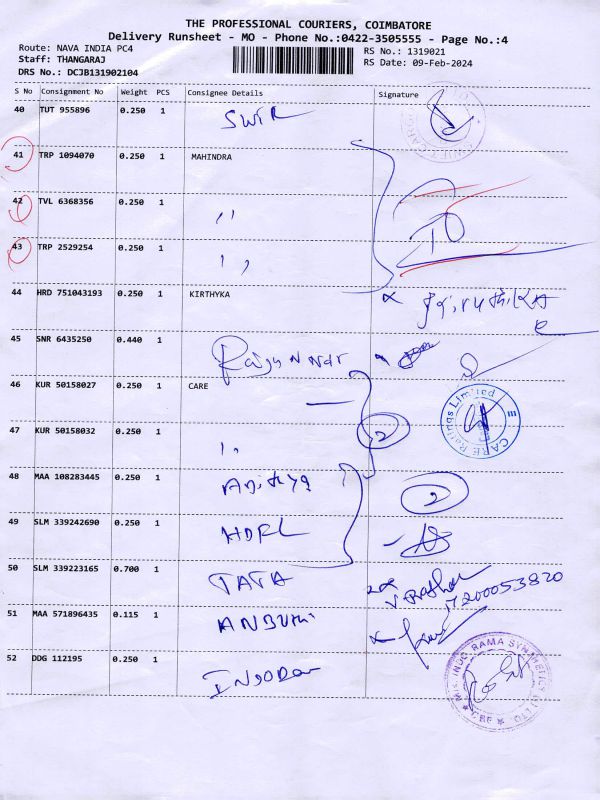 THE PROFESSIONAL COURIERS, COIMBATORE
Delivery Runsheet - MO - Phone No.:0422-3505555 - Page No.:4
Route: NAVA INDIA PC4 RS No.: 1319021
Staff: THANGARAJ RS Date: 09-Feb-2024
DRS No.: DCJB131902104
S No Consignment No Weight PCS Consignee Details Signature
40 TUT 955896 0.250 1 SWIR
41 TRP 1094070 0.250 1 MAHINDRA
42 TVL 6368356 0.250 1 ,,
43 TRP 2529254 0.250 1 ,,
44 HRD 751043193 0.250 1 KIRTHYKA
45 SNR 6435250 0.440 1
46 KUR 50158027 0.250 1 CARE
CARE Ratings Limited
47 KUR 50158032 0.250 1 ,, 2
48 MAA 108283445 0.250 1 Aditya 2
49 SLM 339242690 0.250 1
50 SLM 339223165 0.700 1 TATA
51 MAA 571896435 0.115 1
52 DDG 112195 0.250 1
INDO RAMA SYNTHETICS